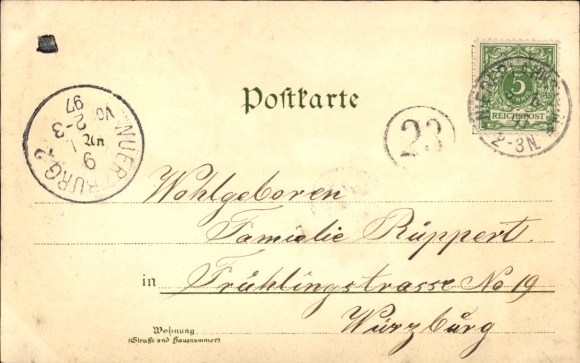 Postkarte
5
PFENNIG
REICHSPOST
2-3N.
23
2-3
97
9
Wohlgeboren
Familie Rüppert.
in Frühlingstrasse No 19
Würzburg
Wohnung
(Straße und Hausnummer)